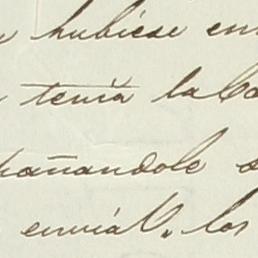 hubiese en
tenía la Co
pañandole s
enviá V. los